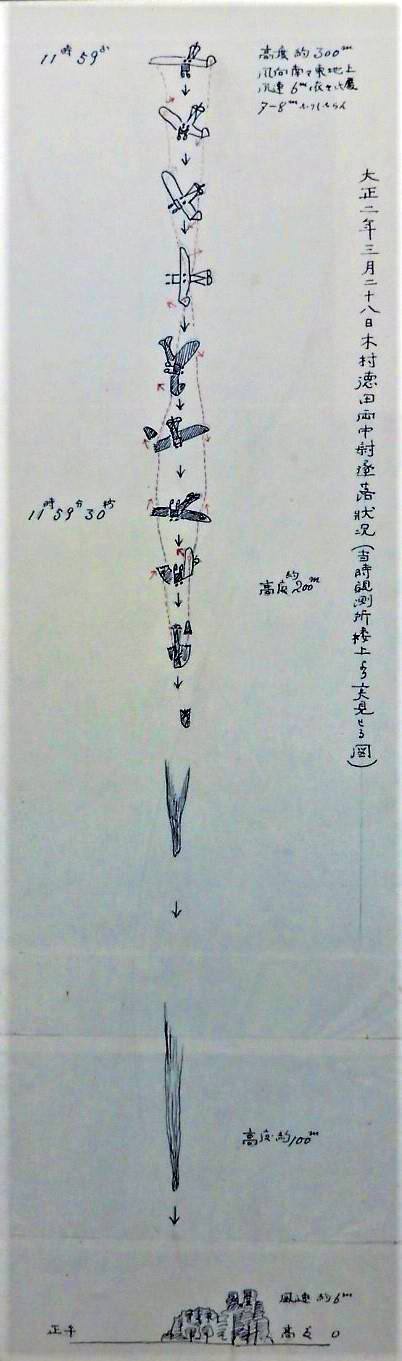 大正二年三月二十八日木村徳田両中尉墜落状況(当時観測所楼上より実見せる図)
11時59分
高度約300m
風向南々東地上
風速6m
7-8m
11時59分30秒
高度約200m
高度約100m
風速約6m
正午
高さ0